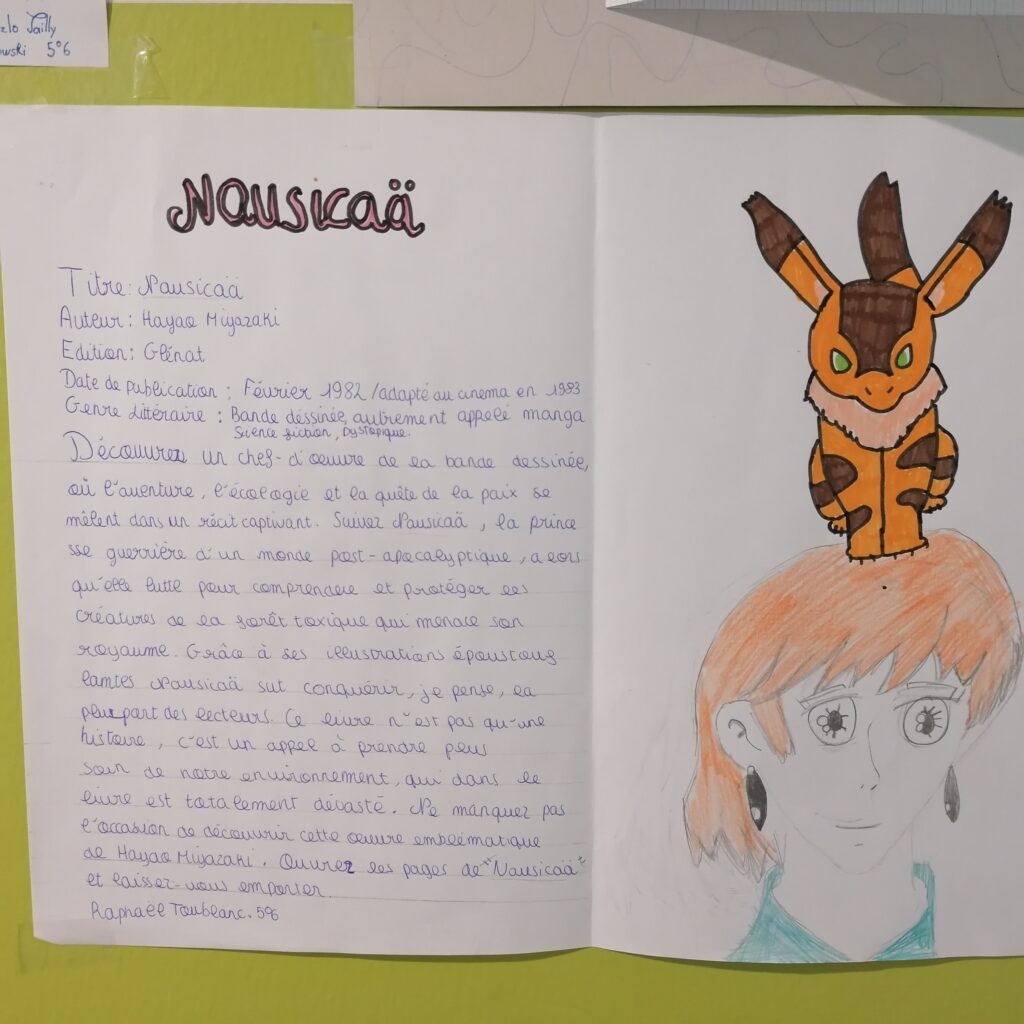 Jailly
5°6
Nausicaä
Titre: Nausicaä
Auteur: Hayao Miyazaki
Edition: Glénat
Date de publication : Février 1982/adapté au cinema en 1983
Genre Littéraire : Bande déssinée, autrement appelé manga
Science fiction, Dystopique.
Découvrez un chef-d'œuvre de la bande dessinée,
où l'aventure, l'écologie et la quête de la paix se
mêlent dans un récit captivant. Suivez Nausicaä, la prince
sse guerrière d'un monde post-apocalyptique, alors
qu'elle lutte pour comprendre et protéger les
créatures de la forêt toxique qui menace son
royaume. Grâce à ses illustrations époustouf
lantes Nausicaä sut conquérir, je pense, la
plupart des lecteurs. Ce livre n'est pas qu'une
histoire, c'est un appel à prendre plus
soin de notre environnement, qui dans le
livre est totalement dévasté. Ne manquez pas
l'occasion de découvrir cette œuvre emblématique
de Hayao Miyazaki. Ouvrez les pages de "Nausicaä"
et laisser-vous emporter.
Raphaël Toublanc. 5°6